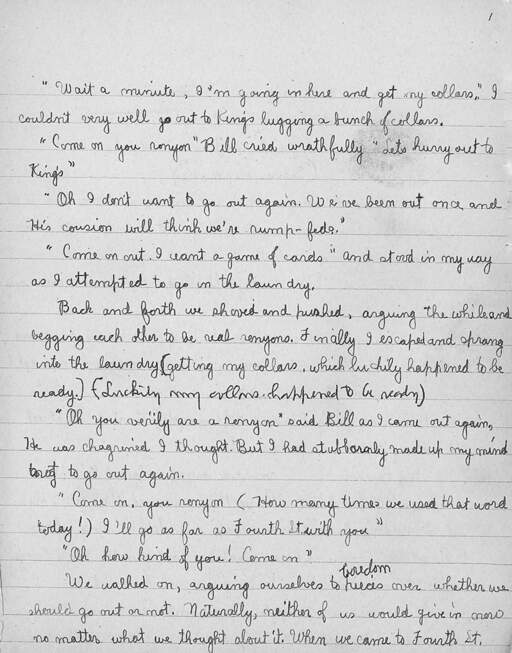 1
"Wait a minute, I'm going in here and get my collars," I
couldn't very well go out to Kings lugging a bunch of collars.
"Come on you ronyon" Bill cried wrathfully "Lets hurry out to
King's"
"Oh I don't want to go out again. We've been out once and
His cousion will think we're rump-feds."
"Come on out. I want a game of cards" and stood in my way
as I attempted to go in the laundry.
Back and forth we shoved and pushed, arguing the while and
begging each other to be real ronyons. Finally I escaped and sprang
into the laundry (getting my collars, which luckily happened to be
ready.) (Luckily my collars happened to be ready)
"Oh you verily are a ronyon" said Bill as I came out again,
He was chagrined I thought. But I had stubbornly made up my mind
to go out again.
"Come on, you ronyon (How many times we used that word
today!) I'll go as far as Fourth St. with you"
"Oh how kind of you! Come on"
boredom
We walked on, arguing ourselves to pieces over whether we
should go out or not. Naturally, neither of us would give in now
no matter what we thought about it. When we came to Fourth St.